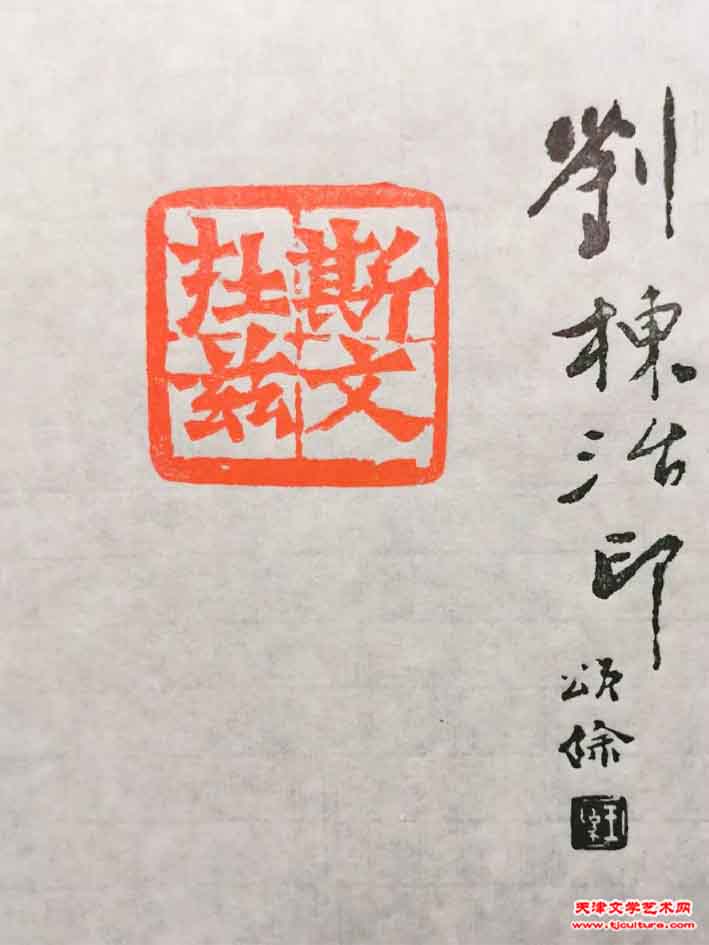 劉棟治印
頌餘
斯文
在兹
天津文学艺术网
www.tjculture.com